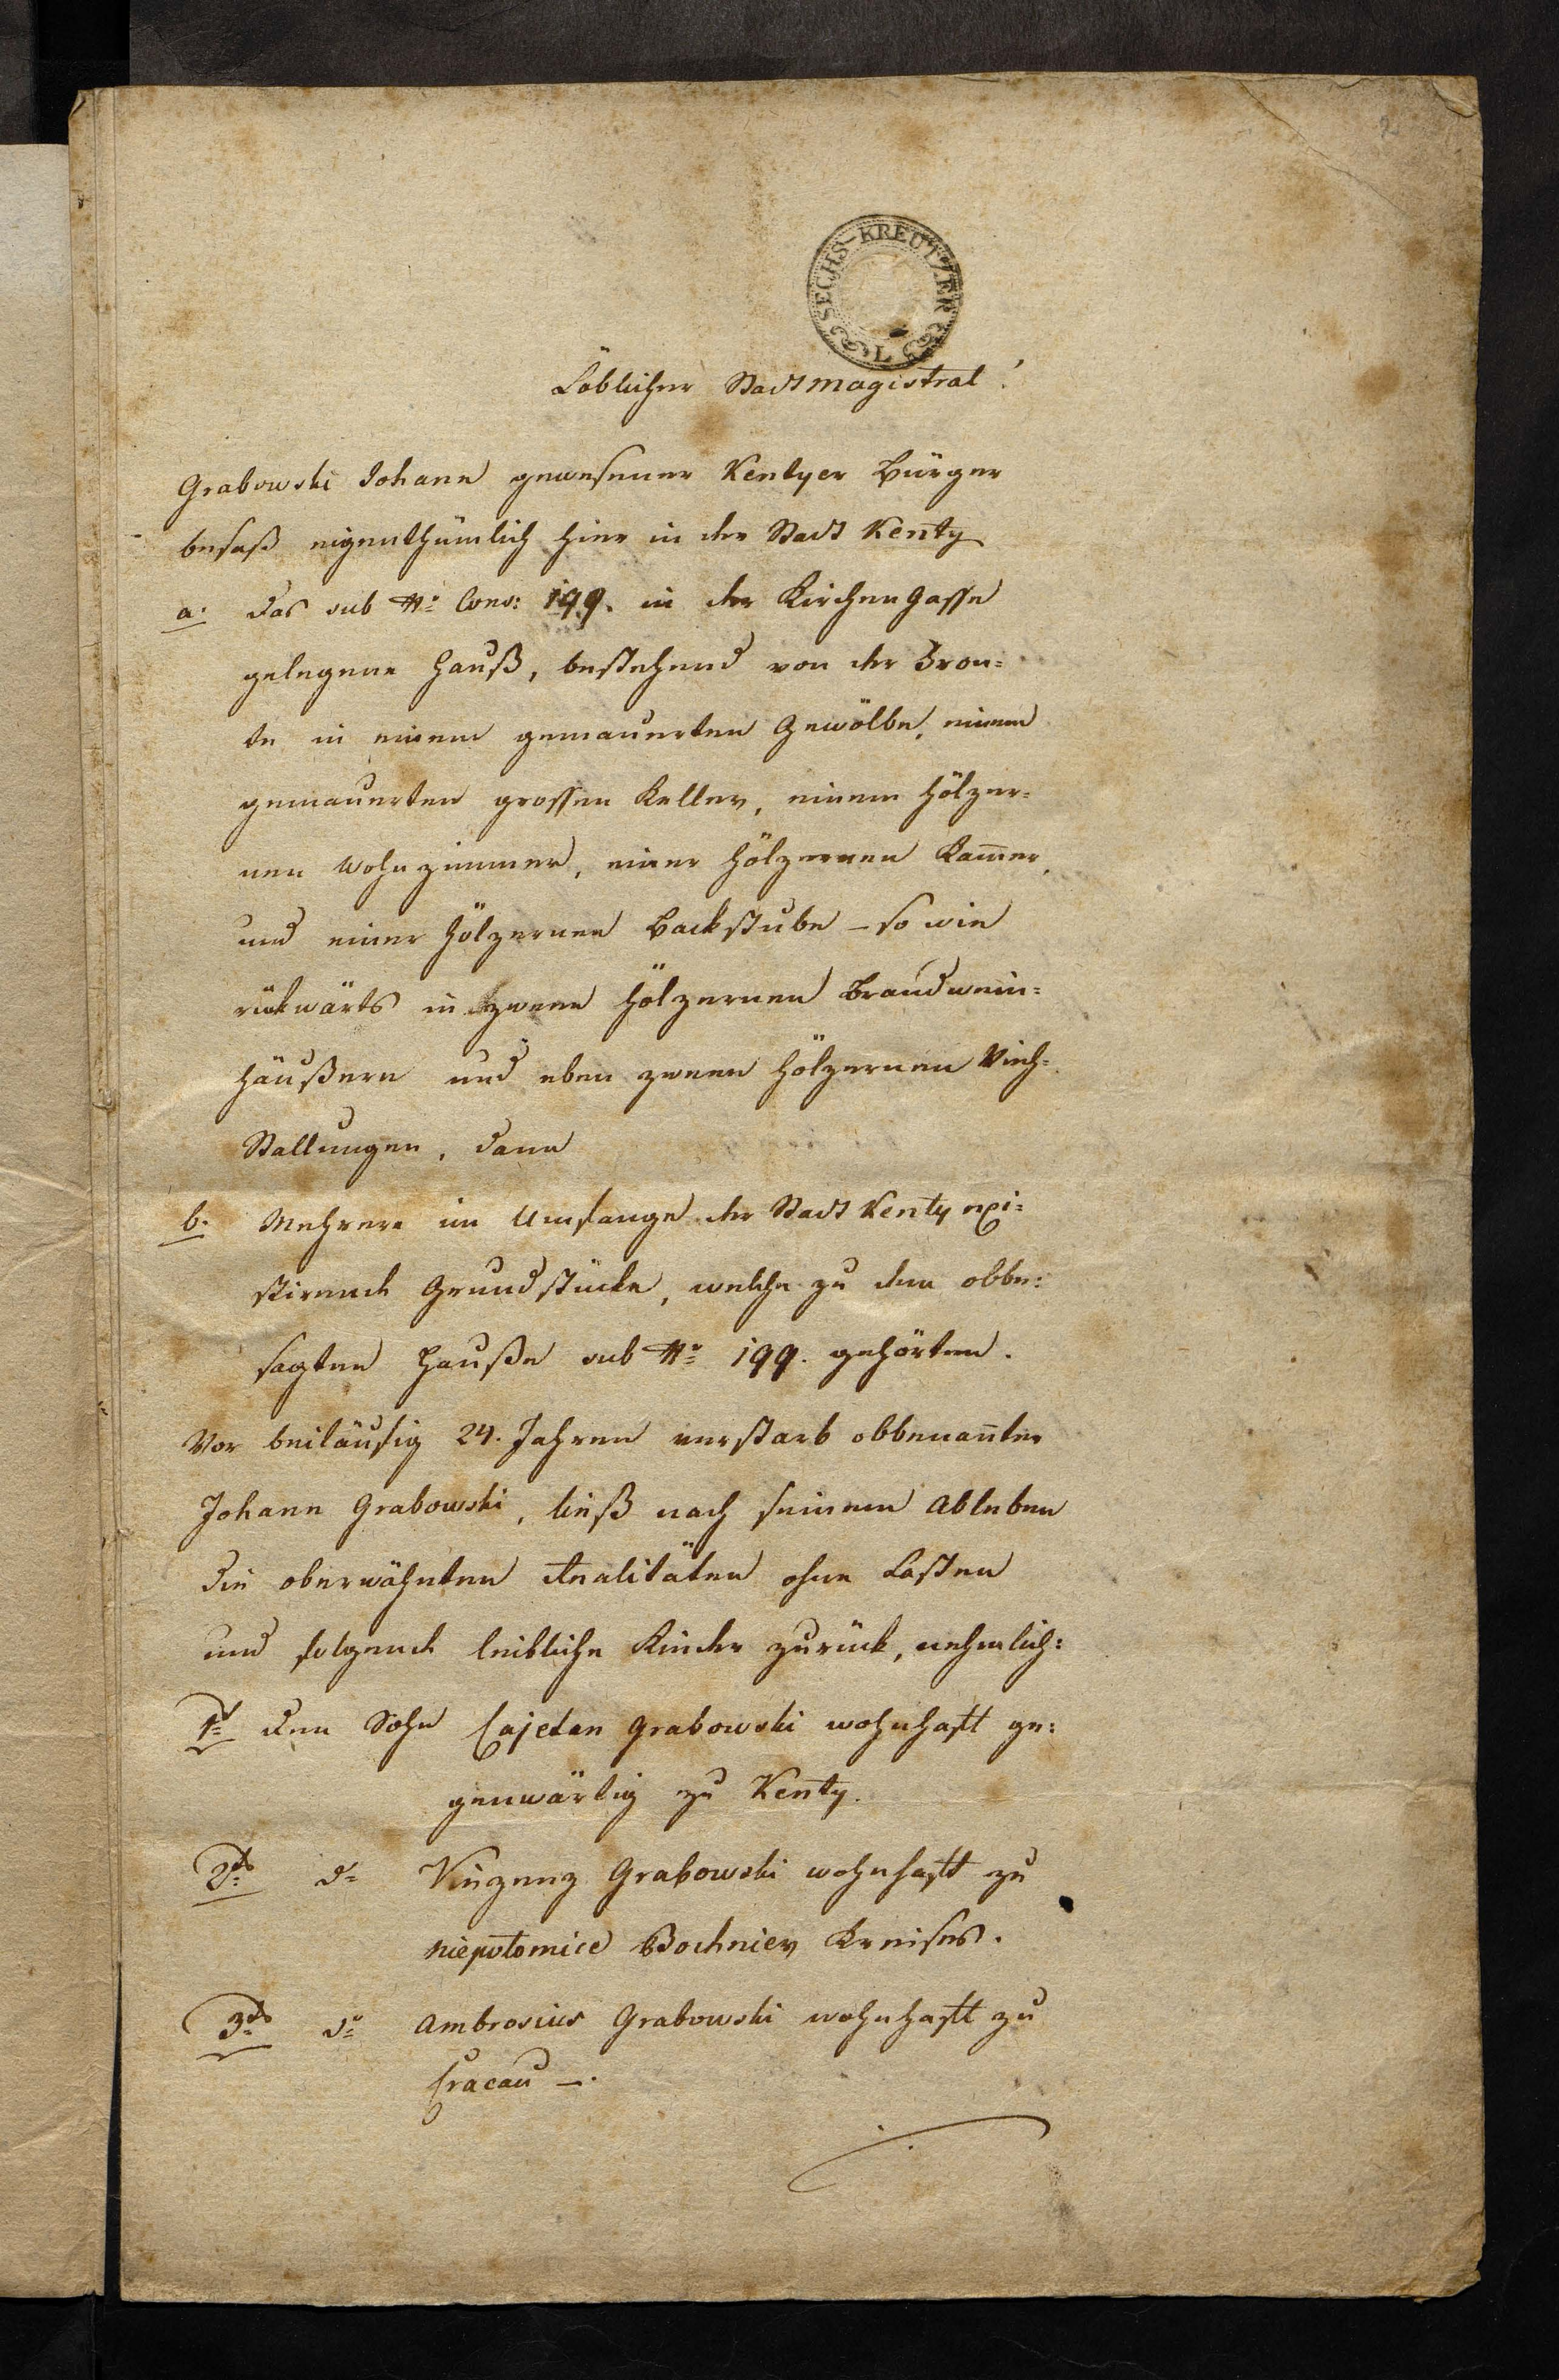 2
SECHS-KREUTZER
L
Löblicher Stadtmagistrat!
Grabowski Johann gewesener Kentyer Bürger
besaß eigenthümlich hier in der Stadt Kenty
a. das sub No Cons: 199. in der Kirchen Gasse
gelegene Hauß, bestehend von der Fron=
te in einem gemauerten Gewölbe, einem
gemauerten grossen Keller, einem hölzer=
nen Wohnzimmer, einer hölzernen Kam̄er,
und einer hölzernen Backstube – so wie
rükwärts in zween hölzernen Brandwein=
häußern und eben zween hölzernen Vieh=
Stallungen, dann
b. Mehrere im Umfange der Stadt Kenty exi=
stirende Grundstücke, welche zu dem obbe=
sagten Hauße sub No 199. gehörten.
Vor beiläufig 24. Jahren verstarb obbenan̄ter
Johann Grabowski, ließ nach seinem Ableben
die oberwähnten Realitäten ohne Lasten
und folgende leibliche Kinder zurück, nehmlich:
1tens den Sohn Cajetan Grabowski wohnhaft ge=
genwärtig zu Kenty.
2tens do Vinzenz Grabowski wohnhaft zu
Niepolomice Bochnier Kreises.
3tens do Ambrosius Grabowski wohnhaft zu
Cracau –.